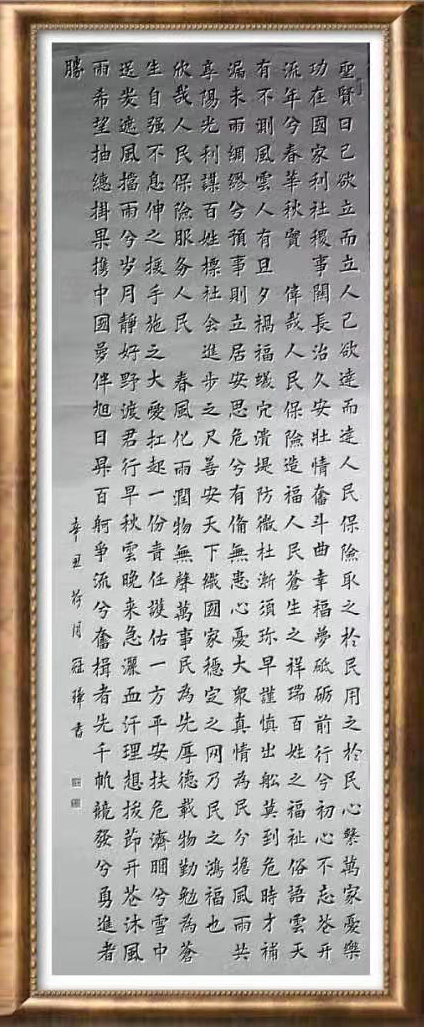 聖賢曰己欲立而立人己欲達而達人民保險取之於民用之於民心繫萬家憂樂
功在國家利社稷事關長治久安壯情奮斗曲幸福夢砥砺前行兮初心不忘花开
流年兮春華秋實 偉哉人民保險造福人民蒼生之祥瑞百姓之福祉俗語雲天
有不測風雲人有旦夕禍福蟻穴潰堤防微杜漸須弥早謹慎出船莫到危時才補
漏未雨綢繆兮預事則立居安思危兮有備無患心憂大衆真情為民兮擔風雨共
享陽光利謀百姓標社会進步之尺善安天下織國家穩定之网乃民之鴻福也
欣哉人民保險服务人民 春風化雨潤物無聲萬事民為先厚德載物勤勉為蒼
生自强不息伸之援手施之大愛扛起一份責任護佑一方平安扶危濟困兮雪中
送炭遮風擋雨兮岁月靜好野渡君行早秋雲晚来急灑血汗理想拔節开花沐風
雨希望抽穗掛果携中國夢伴旭日昇百舸争流兮奮楫者先千帆競發兮勇進者
勝
辛丑荷月冠璋書